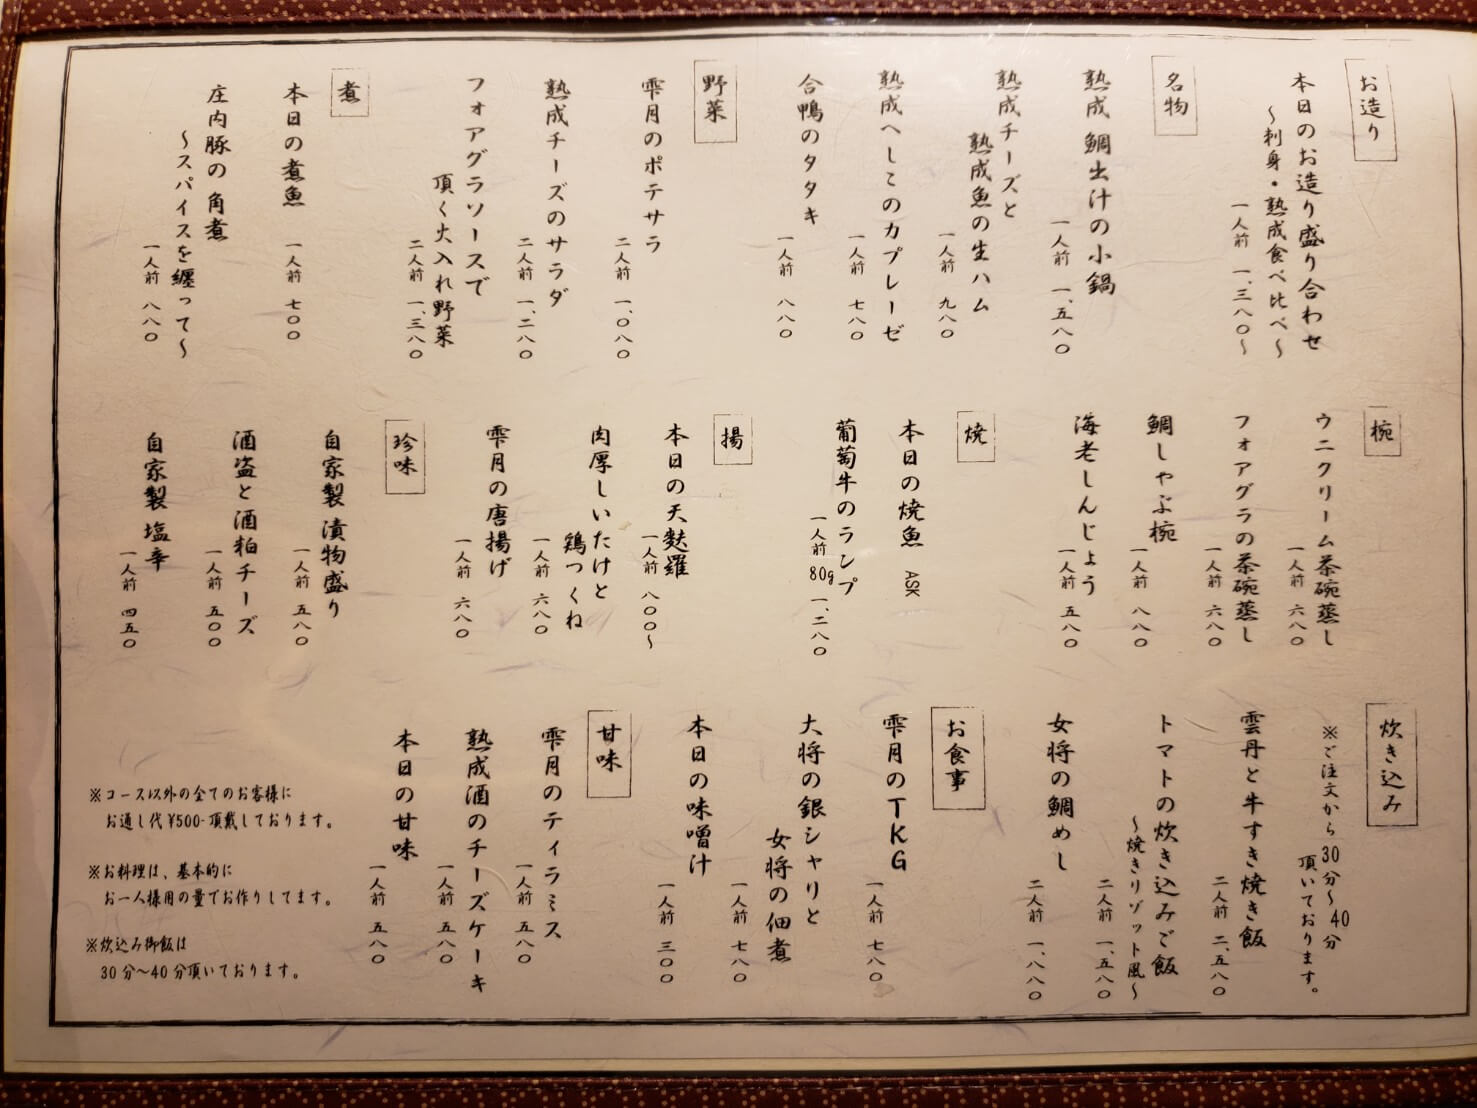 お造り
本日のお造り盛り合わせ
～刺身・熟成食べ比べ～
一人前 一、三八〇～
名物
熟成 鯛出汁の小鍋
一人前 一、五八〇
熟成チーズと
熟成魚の生ハム
一人前 九八〇
熟成へしこのカプレーゼ
一人前 七八〇
合鴨のタタキ
一人前 八八〇
野菜
雫月のポテサラ
二人前 一、〇八〇
熟成チーズのサラダ
二人前 一、二八〇
フォアグラソースで
頂く火入れ野菜
二人前 一、三八〇
煮
本日の煮魚
一人前 七〇〇
庄内豚の 角煮
～スパイスを纏って～
一人前 八八〇
椀
ウニクリーム茶碗蒸し
一人前 六八〇
フォアグラの茶碗蒸し
一人前 六八〇
鯛しゃぶ椀
一人前 八八〇
海老しんじょう
一人前 五八〇
焼
本日の焼魚 ASK
葡萄牛のランプ
一人前 80g 一、二八〇
揚
本日の天麩羅
一人前 八〇〇～
肉厚しいたけと
鶏つくね
一人前 六八〇
雫月の唐揚げ
一人前 六八〇
珍味
自家製 漬物盛り
一人前 五八〇
酒盗と酒粕チーズ
一人前 五〇〇
自家製 塩辛
一人前 四五〇
炊き込み
※ご注文から30分～40分
頂いております。
雲丹と牛すき焼き飯
二人前 二、五八〇
トマトの炊き込みご飯
～焼きリゾット風～
二人前 一、五八〇
女将の鯛めし
二人前 一、八八〇
お食事
雫月のTKG
一人前 七八〇
大将の銀シャリと
女将の佃煮
一人前 七八〇
本日の味噌汁
一人前 三〇〇
甘味
雫月のティラミス
一人前 五八〇
熟成酒のチーズケーキ
一人前 五八〇
本日の甘味
一人前 五八〇
※コース以外の全てのお客様に
お通し代¥500-頂戴しております。
※お料理は、基本的に
お一人様用の量でお作りしてます。
※炊込み御飯は
30分～40分頂いております。